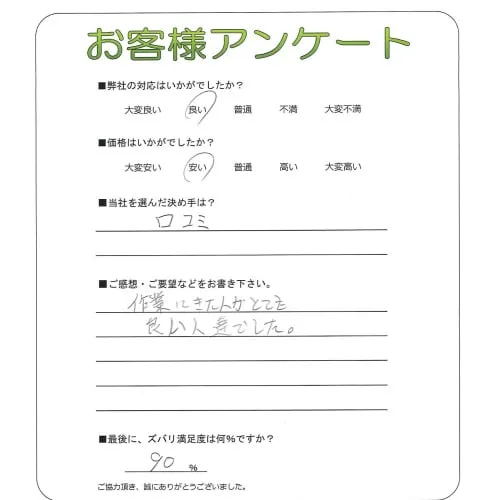 お客様アンケート
■弊社の対応はいかがでしたか？
大変良い 良い 普通 不満 大変不満
■価格はいかがでしたか？
大変安い 安い 普通 高い 大変高い
■当社を選んだ決め手は？
口コミ
■ご感想・ご要望などをお書き下さい。
作業にきた人がとても
良い人達でした。
■最後に、ズバリ満足度は何%ですか？
90 %
ご協力頂き、誠にありがとうございました。